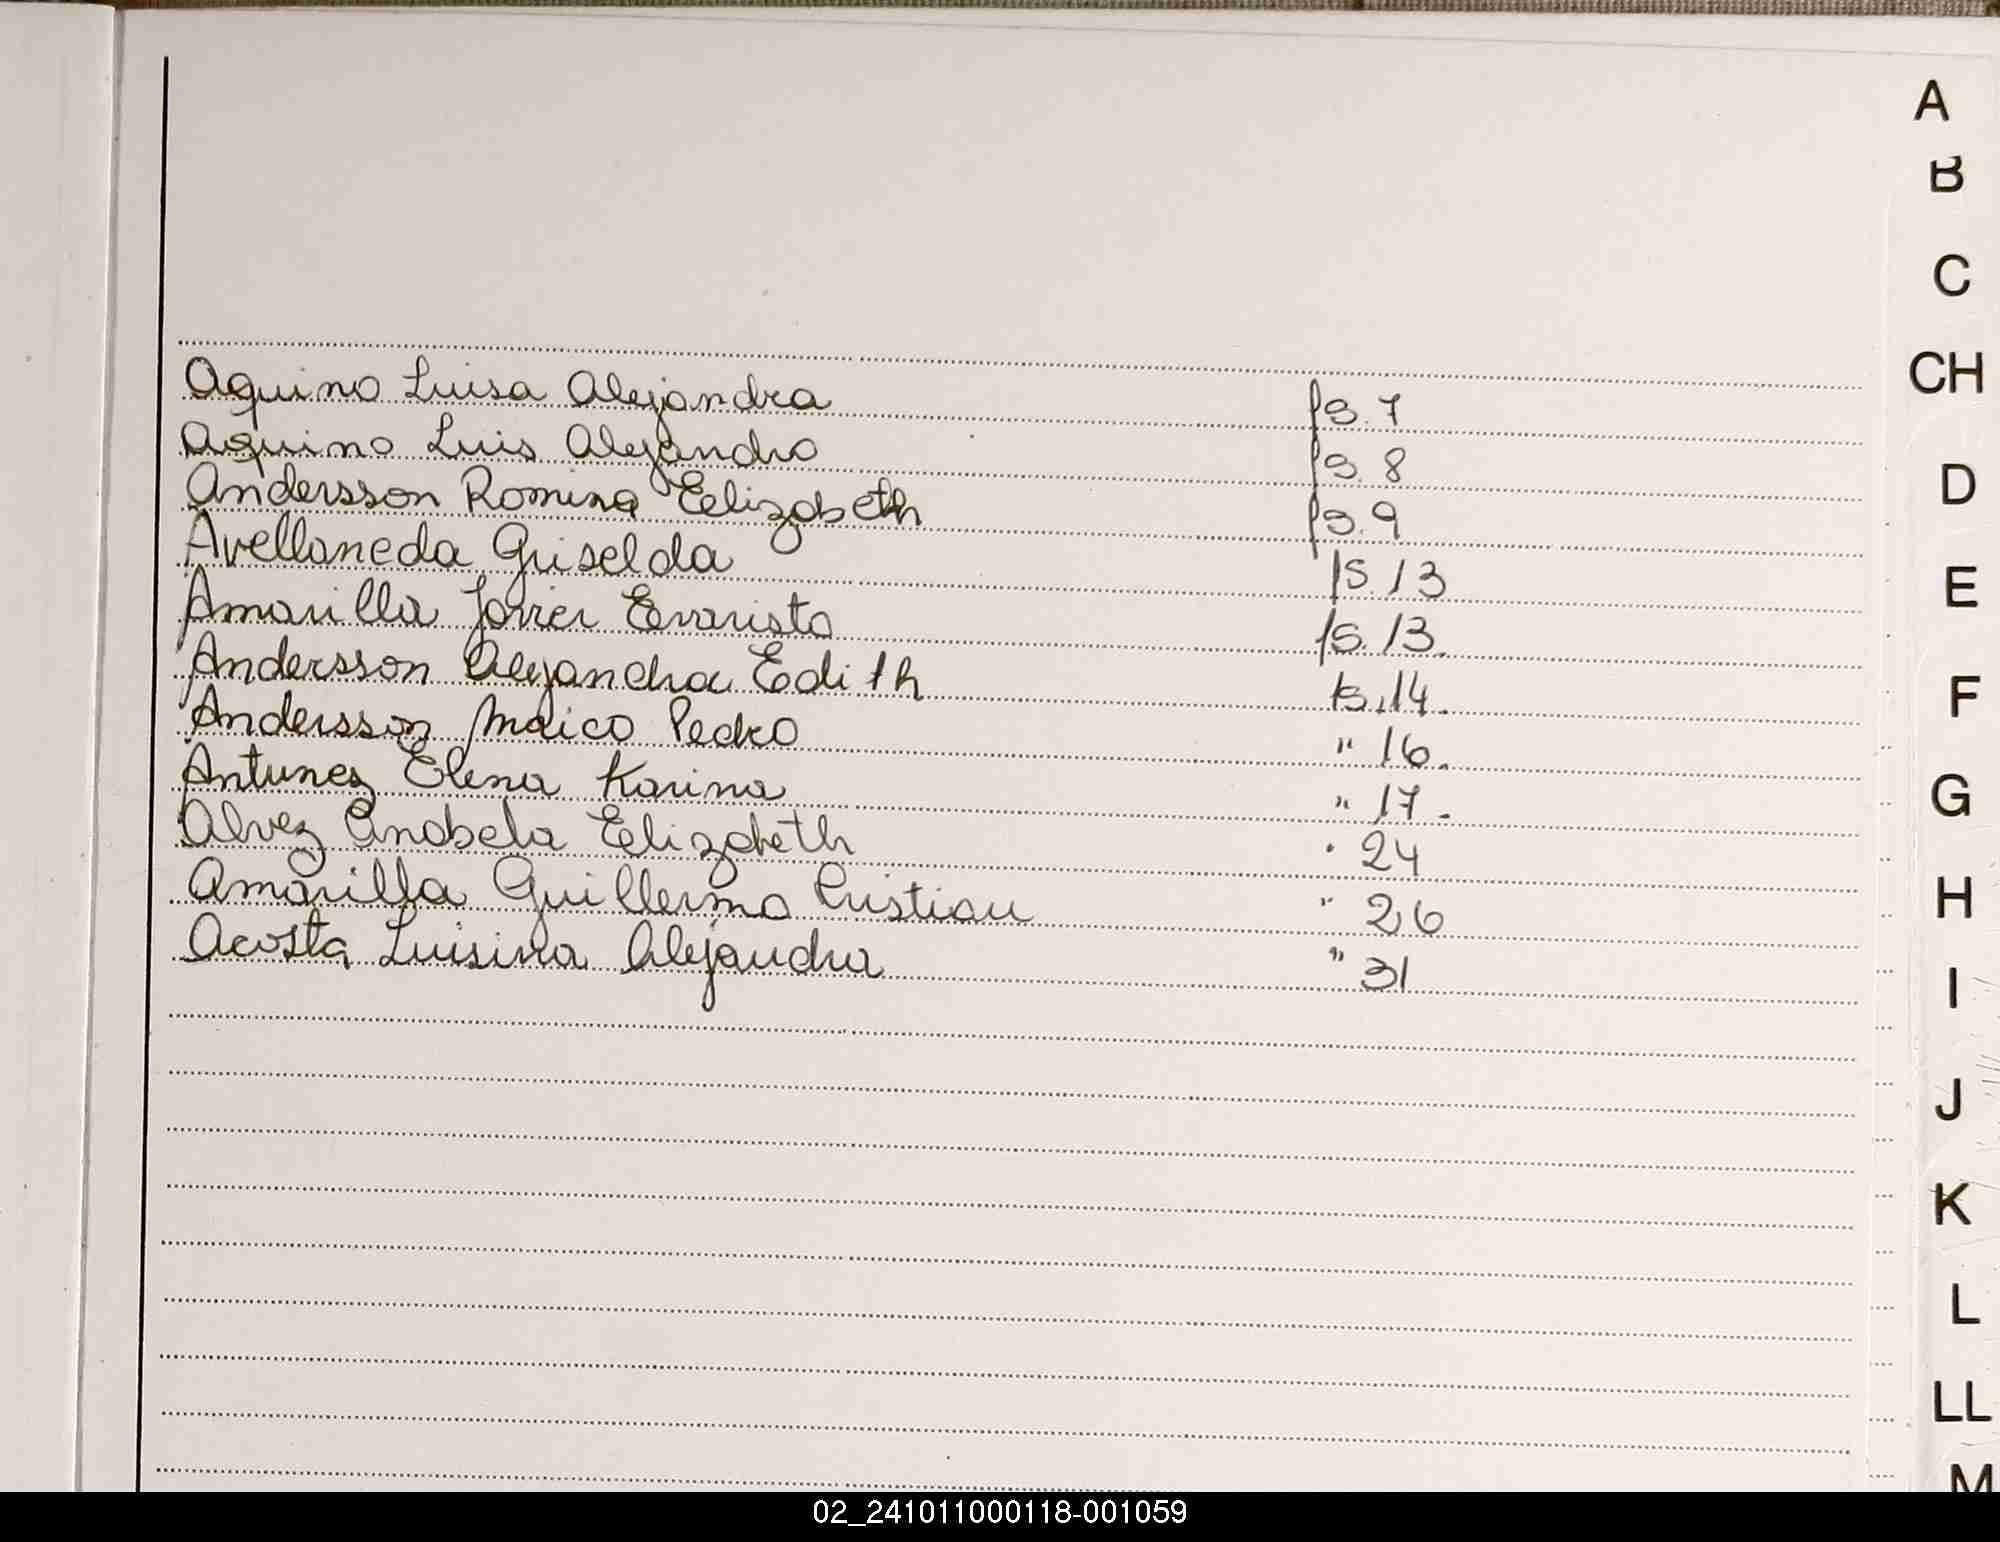 A
B
C
CH
Aquino Luisa Alejandra fs. 7
Aquino Luis Alejandro fs. 8
Andersson Romina Eelizabeth fs. 9
Avellaneda Griselda fs. 13
Amarilla Javier Evaristo fs. 13.
Andersson Alejandra Edith fs. 14.
Andersson Maico Pedro " 16.
Antunez Elena Karina " 17.
Alvez Anabela Elizabeth " 24
Amarilla Guillermo Cristian " 26
Acosta Luisina Alejandra " 31
D
E
F
G
H
I
J
K
L
LL
M
02_241011000118-001059